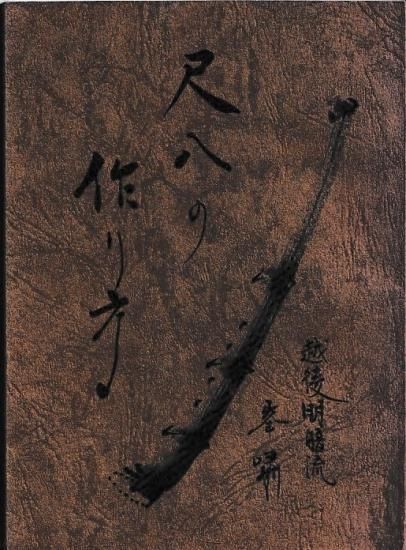 尺八の
作り方
越後明暗流